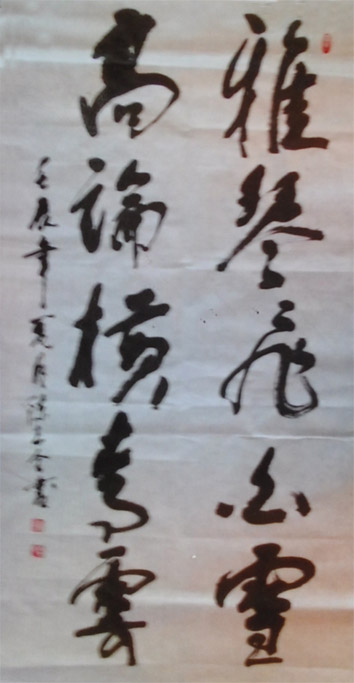 雅琴飛白雪
高論橫青雲
壬辰年夏月
書